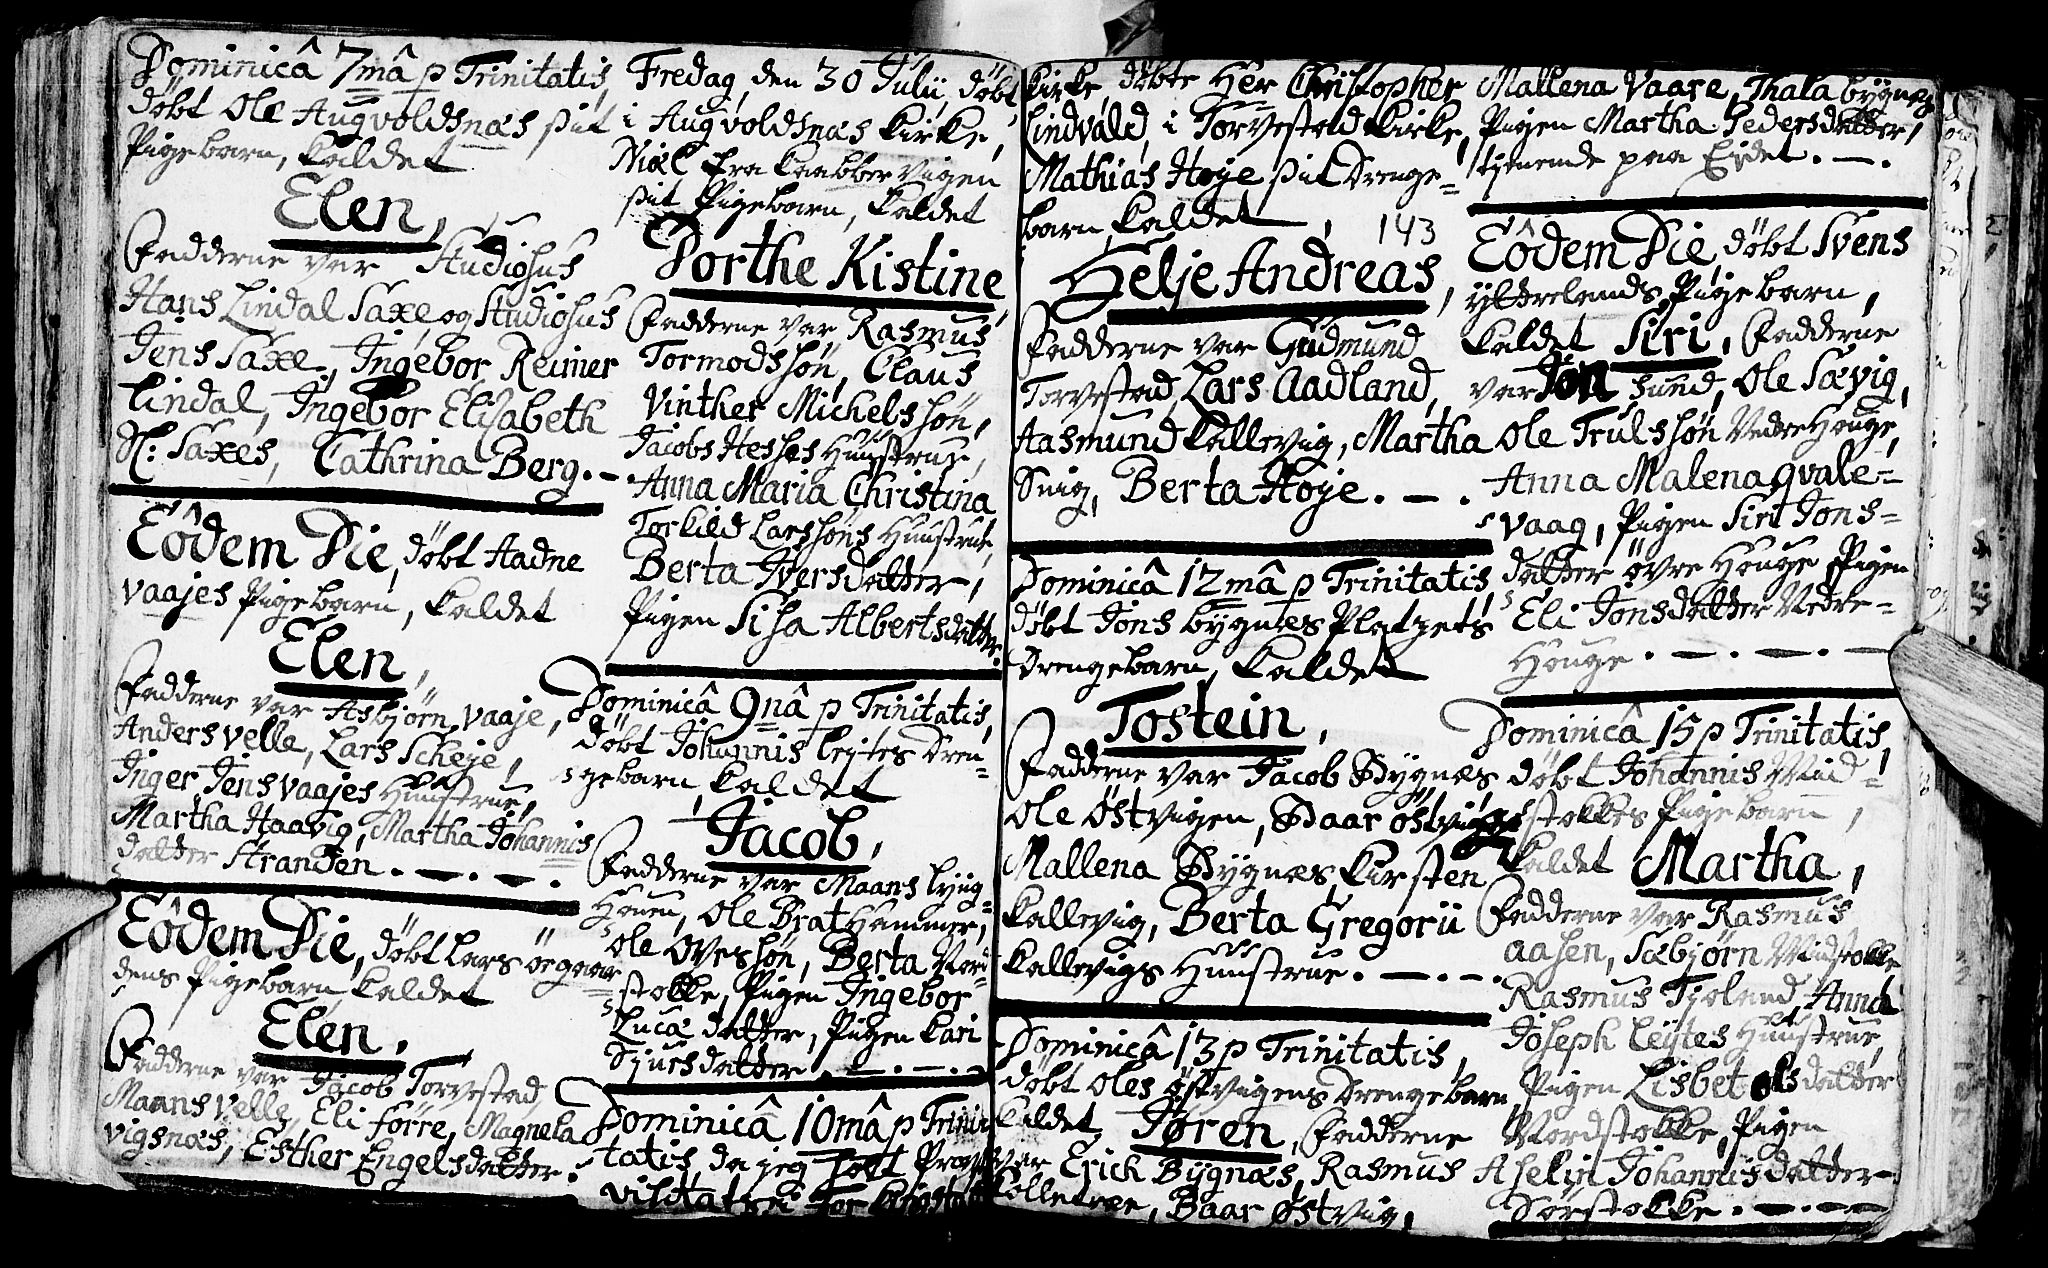 Dominicâ 7mâ p Trinitatis,
döbt Ole Augvoldsnæs sit
Pigebarn, kaldet
Elen,
Fadderne var Studiosus
Hans Lindal Saxe og Studiosus
Jens Saxe, Ingebor Reimer
Lindal, Ingebor Elisabeth
Sl: Saxes, Cathrina Berg. -
Eôdem Die, döbt Aadne
vaajes Pigebarn, kaldet
Elen,
Fadderne var Asbjörn vaaje,
Anders velle, Lars Scheje,
Inger Jens vaajes Huustrue,
Martha Haavig, Martha Johannis
datter Stranden . - . - .
Eôdem Die, döbt Lars öegaar
dens Pigebarn, kaldet
Elen,
Fadderne var Jacob Torvestad
Maans velle, Eli førre, Magnela
vigsnæs, Esther Engelsdatter.
Fredag, den 30 Julii, döbt,
i Augvoldsnæs Kirke,
Niæl fra Kaabbervigen
sit Pigebarn, kaldet
Dorthe Kistine,
Fadderne var Rasmus
Tormodssön, Claus
Vinther Michelssön,
Jacobs Hesses Huustrue,
Anna Maria Christina
Torkild Larssöns Huustrue,
Berta Iversdatter,
Pigen Sisa Albertsdatter.
Dominicâ 9nâ p Trinitatis,
döbt Johannis leptes Dren-
gebarn, kaldet
Jacob,
Fadderne var Maans lyng-
Houen, Ole Brathammer,
Ole Ovessön, Berta Nord-
stokke, Pigen Ingebor
Lucæ datter, Pigen Kari
Sjursdatter . - . - .
Dominicâ 10mâ p Trini
tatis, da jeg holt
visitatz i
Kirke, döbte Her Christopher
Lindvald, i Torvestad Kirke,
Mathias Høje sit Drenge-
barn, kaldet, 143
Helje Andreas,
Fadderne var Gudmund
Torvestad, Lars Aadland,
Aasmund Kallevig, Martha
Snig, Berta Høje . - .
Dominicâ 12mâ p Trinitatis,
döbt Jons bygnes Platzets
Drengebarn, kaldet
Tostein,
Fadderne var Jacob Bygnæs
Ole Östvigen, Baar östvigen
Mallena Bygnæs, Kirsten
Kallevig, Berta Gregorii
Kallevigs Huustrue . - . - .
Dominicâ 13 p Trinitatis,
döbt Oles östvigens Drengebarn,
kaldet Jøren, Fadderne
var Erich Bygnæs, Rasmus
Kolletvee, Baar Østvig,
Mallena Vaare, Thala bygnæs
Pigen Martha Pedersdatter,
tjenende paa Eidet. - .
Eôdem Die, döbt Svens
ytrelands Pigebarn,
kaldet Siri, Fadderne
var Jon Sund, Ole Sævig,
Ole Trulssøn Nedre Houge,
Anna Malena qvale-
vaag, Pigen Siri Jons-
datter övre Houge Pigen
Eli Jonsdatter Nedre-
Houge . - . - . -
Dominicâ 15 p Trinitatis,
döbt Johannis Mid-
stokkes Pigebarn,
kaldet Martha,
Fadderne var Rasmus
aasen, Sæbjørn Midstokke
Rasmus Tjoland, Anna
Joseph Leytes Huustrue,
Pigen Lisbet Olsdatter
Nordstokke, Pigen
Aselin Johannisdatter
Sörstokke . - . - -